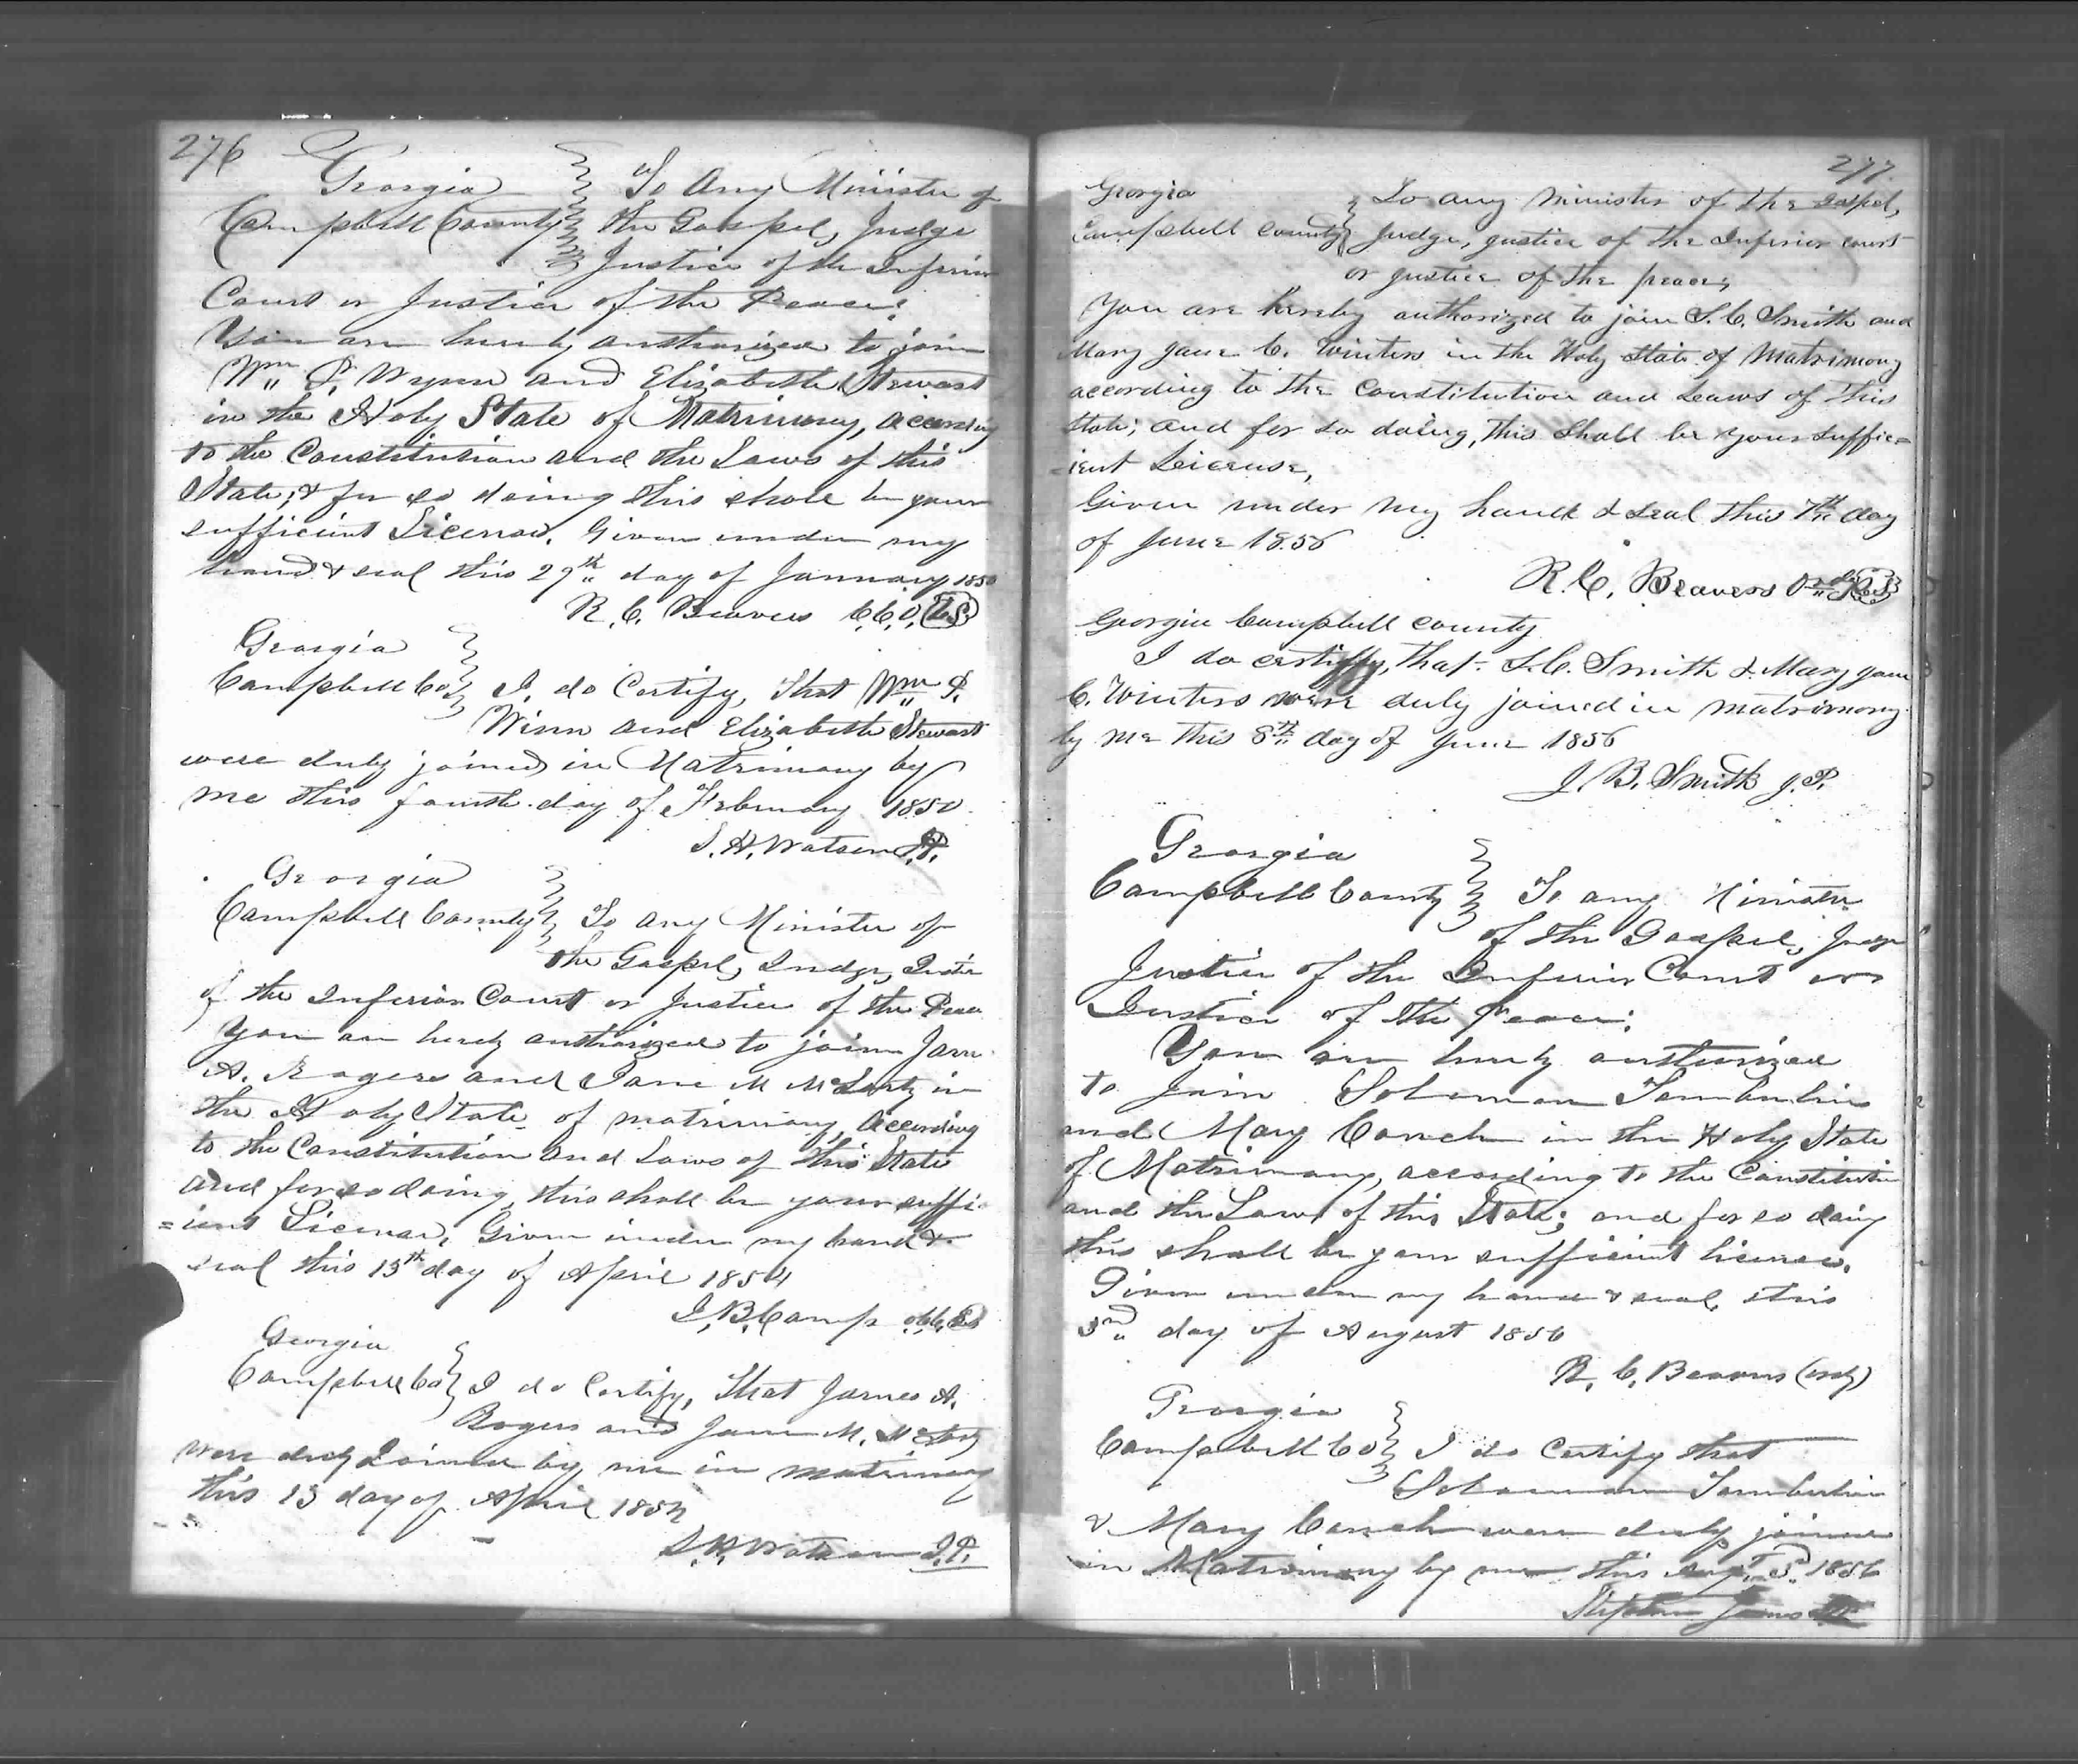 276
Georgia To Any Minister of
Campbell County the Gospel, Judge
Justice of the Inferior
Court or Justice of the Peace:
You are hereby authorized to join
Wm P. Wynn and Elizabeth Stewart
in the Holy State of Matrimony, according
to the Constitution and the Laws of this
State; & for so doing this shall be your
sufficient License. Given under my
hand & seal this 29th day of January 1850
R. C. Beavers C.C.O. (LS)
Georgia
Campbell Co I, do Certify, that Wm P.
Winn and Elizabeth Stewart
were duly joined in Matrimony by
me this fourth day of February 1850
S. H. Watson J.P.
Georgia
Campbell County To any Minister of
the Gospel, Judge, Justice
of the Inferior Court or Justice of the Peace
You are hereby authorized to join Jam
A. Rogers and Jane M McLarty in
the Holy State of matrimony, according
to the Constitution and Laws of this State
and for so doing, this shall be your suffi
=ient License, Given under my hand &
seal this 13th day of April 1854
J. B. Camp
Georgia
Campbell Co I do Certify, that James A.
Rogers and Jane M. McLarty
were duly Joined by me in matrimony
this 13 day of April 1854
S. H. Watson J.P.
277
Georgia To any minister of the Gospel,
Campbell County Judge, justice of the Inferior court
or justice of the peace,
You are hereby authorized to join S. C. Smith and
Mary Jane C. Winters in the Holy State of Matrimony
according to the Constitution and Laws of this
State; and for so doing, this shall be your suffic=
=ient Leicense,
Given under my hand & seal this 7th day
of June 1856
R. C. Beavers Ord (LS)
Georgia Campbell County
I do certify, that S. C. Smith & Mary Jane
C. Winters were duly joined in matrimony
by me this 8th day of June 1856
J. B. Smith J.P.
Georgia
Campbell County To any Minister
of the Gospel, Judge
Justice of the Inferior Court or
Justice of the Peace:
You are hereby authorized
to join Solomon Tomberlin
and Mary Couch in the Holy State
of Matrimony, according to the Constitution
and the Laws of this State; and for so doing
this shall be your sufficient license.
Given under my hand & seal, this
3rd day of August 1856
R. C. Beavers (ordy)
Georgia
Campbell Co I do Certify that
Solomon Tomberlin
& Mary Couch were duly joined
in Matrimony by me this Augt 3 1856
Stephen James